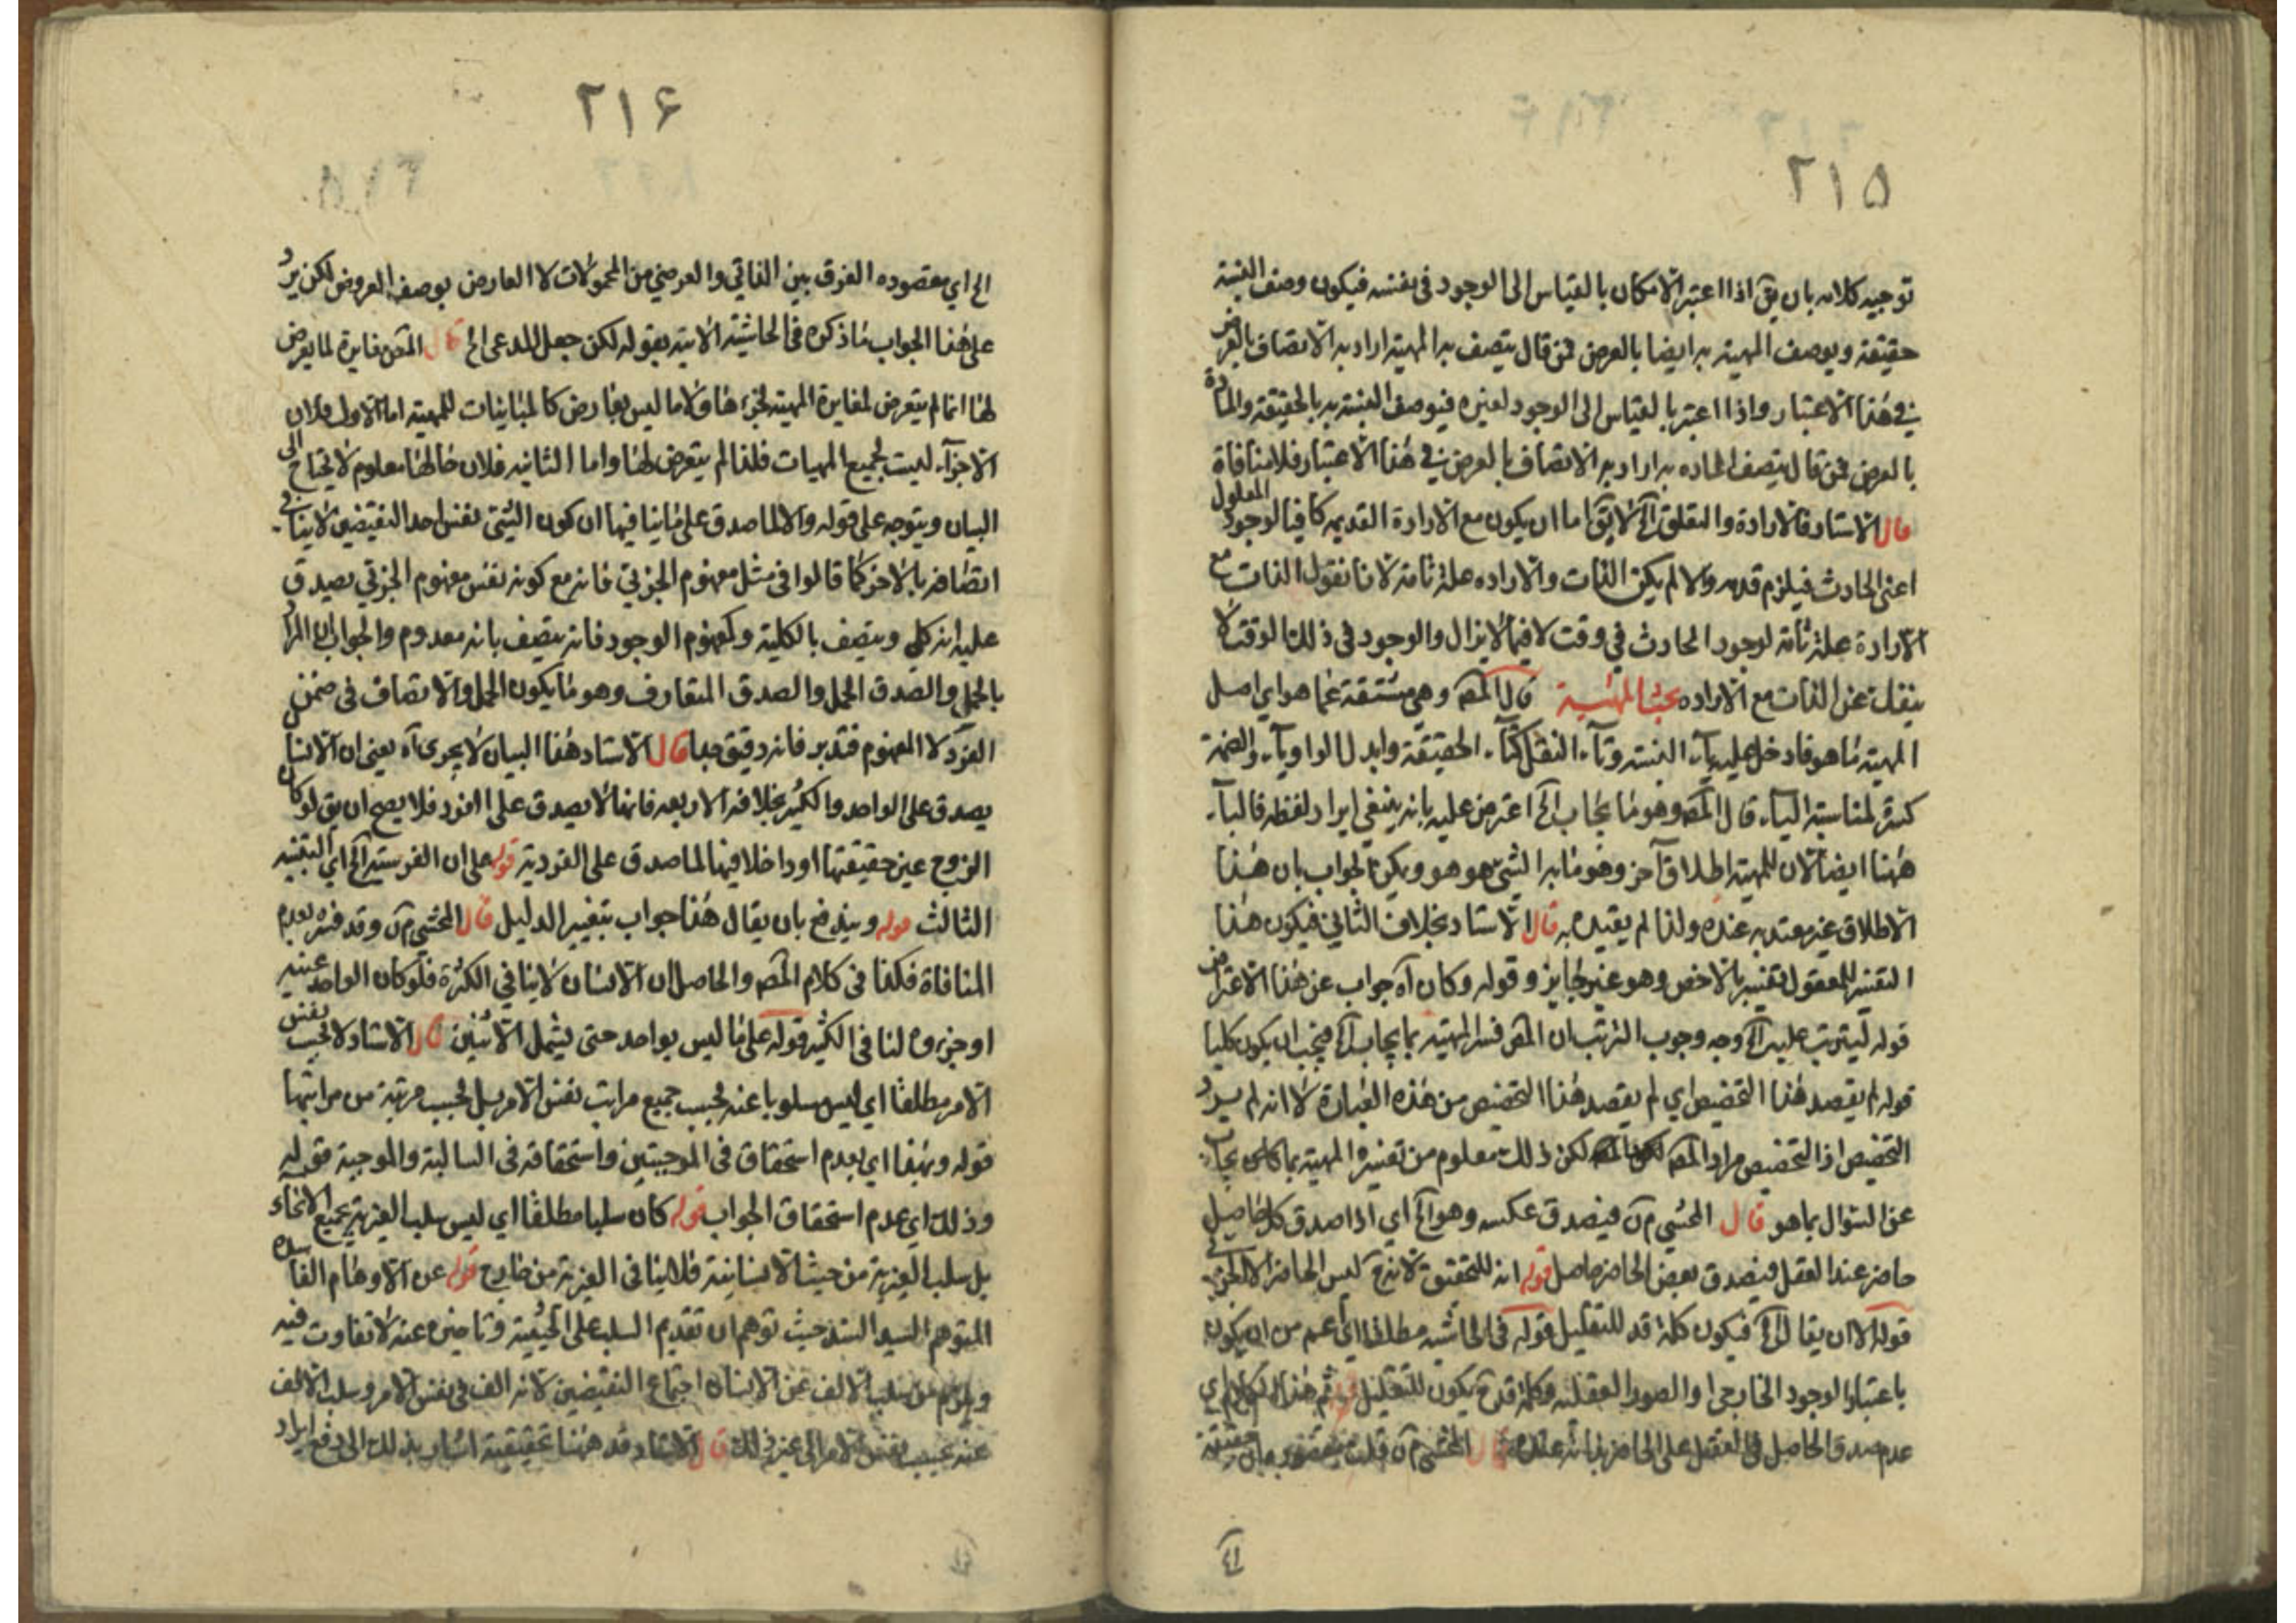 ٢١٥
توجيه كلامه بان يق اذا اعتبر الامكان بالقياس الى الوجود في نفسه فيكون وصف النسبة
حقيقة ويوصف المهية به ايضا بالعرض فمن قال يتصف به المهية اراد به الاتصاف بالعرض
في هذا الاعتبار واذا اعتبر بالقياس الى الوجود لغيره فيوصف النسبة به بالحقيقة والمادة
بالعرض فمن قال يتصف المادة به اراد به الاتصاف بالعرض في هذا الاعتبار فلا منافاة
قال الاستاد فالارادة والتعلق الخ لا يق اما ان يكون مع الارادة القديمه كافيا لوجود المعلول
اعني الحادث فيلزم قدمه والا لم يكن الذات والاراده علة تامة لانا نقول الذات مع
الارادة علة تامة لوجود الحادث في وقت لا فيما لا يزال والوجود في ذلك الوقت لا
ينفك عن الذات مع الاراده بحث المهية قال المصه وهي مشتقة عما هو اي اصل
المهية ما هو فادخل عليه ياء النسبة وتاء النقل كتاء الحقيقة وابدل الواو ياء والضمة
كسرة لمناسبة الياء قال المصه وهو ما يجاب الخ اعترض عليه بانه ينبغي ايراد لفظه
ههنا ايضا لان للمهية اطلاق آخر وهو ما به الشيء هو هو ويمكن الجواب بان هذا
الاطلاق غير معتد به عنده ولذا لم يقيده به قال الاستاد بخلاف الثاني فيكون هذا
التفسير للمعقول تفسير بالاخص وهو غير جايز وقوله وكان آه جواب عن هذا الاعتراض
قوله ليترتب عليه الخ وجه وجوب الترتب ان المص فسر المهية بما يجاب الخ فيجب ان يكون كليا
قوله لم يقصد هذا التخصيص اي لم يقصد هذا التخصيص من هذه العبارة لا انه لم يرد
التخصيص اذ التخصيص مراد المصه لكن ذلك معلوم من تفسير المهية بما يجاب
عن السؤال بما هو قال المحشي م ن فيصدق عكسه وهو الخ اي اذا صدق كل حاصل
حاضر عند العقل فيصدق بعض الحاضر حاصل قوله انه للتحقيق لانه ح ليس الحاضر الا الجزئي
قوله الا ان يقال الخ فيكون كلمة قد للتقليل قوله في الحاشيه مطلقا اي اعم من ان يكون
باعتبار الوجود الخارجي او الصور العقليه وكلمة قد ح يكون للتقليل ثم هذا الكلام اي
عدم صدق الحاصل في العقل على الحاضر بذاته عنده قال المحشي م ن قلت
٢١٦
الخ اي مقصوده الفرق بين الذاتي والعرضي من المحمولات لا العارض بوصف العروض لكن يرد
على هذا الجواب ما ذكره في الحاشية الاتية بقوله لكن جعل المدعى الخ قال المص مغايرة لما يعرض
لها انما لم يتعرض لمغايرة المهية لجزءها ولا ما ليس بعارض كالمباينات للمهية اما الاول فلان
الاجزاء ليست لجميع المهيات فلذا لم يتعرض لها واما الثانيه فلان حالها معلوم لا يحتاج الى
البيان ويتوجه على قوله والا لما صدق على ما ينافيها ان كون الشيء نفس احد النقيضين لا ينافي
اتصافه بالاخر كما قالوا في مثل مفهوم الجزئي فانه مع كونه نفس مفهوم الجزئي يصدق
عليه انه كلي ويتصف بالكلية وكمفهوم الوجود فانه يتصف بانه معدوم والجواب ان المراد
بالحمل والصدق الحمل والصدق المتعارف وهو ما يكون الحمل والاتصاف في ضمن
الفرد لا المفهوم فتدبر فانه دقيق جدا قال الاستاد هذا البيان لا يجري آه يعني ان الانسان
يصدق على الواحد والكثير بخلاف الاربعه فانها لا يصدق على الفرد فلا يصح ان يق لو كان
الزوج عين حقيقتها او داخلا فيها لما صدق على الفردية قوله على ان الفرسية الخ اي التنبيه
الثالث قوله ويندفع بان يقال هذا جواب بتغيير الدليل قال المحشي م ن وقد فسره بعدم
المنافاة فكذا في كلام المصه والحاصل ان الانسان لا ينافي الكثرة فلو كان الواحد عينه
او جزءه لنافى الكثير قوله على ما ليس بواحد حتى يشمل الاثنين قال الاستاد لا بحسب نفس
الامر مطلقا اي ليس مسلوبا عنه بحسب جميع مراتب نفس الامر بل بحسب مرتبة من مراتبها
قوله وبهذا اي بعدم استحقاق في الموجبتين واستحقاقه في السالبة والموجبة قوله
وذلك اي عدم استحقاق الجواب قوله كان سلبا مطلقا اي ليس سلب الغيرية بجميع الانحاء
بل سلب الغيرية من حيث الانسانية فلا ينافي الغيرية من خارج قوله عن الاوهام الفاسدة
المتوهم السيد السند حيث توهم ان تقديم السلب على الحيثية وتاخيره عنه لا تفاوت فيه
ويلزم من سلب الالف عن الانسان اجتماع النقيضين لانه الف في نفس الامر وسلب الالف
عنه بحسب نفس الامر الى غير ذلك قال الاستاد قد ههنا تحقيقية اشار بذلك الى دفع ايراد